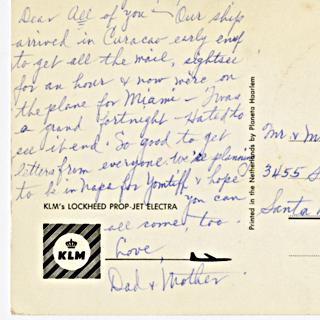 Dear All of you — Our ship
arrived in Curacao early enuf
to get all the mail, sightsee
for an hour & now we're on
the plane for Miami — Twas
a grand fortnight — Hated to
see it end. So good to get
letters from everyone. We're planning
to be in Napa for Yomtiff & hope
you can
all come, too.
Love,
Dad & Mother
KLM's LOCKHEED PROP-JET ELECTRA
KLM
Printed in the Netherlands by Planeta Haarlem
Mr & M
3455 S
Santa